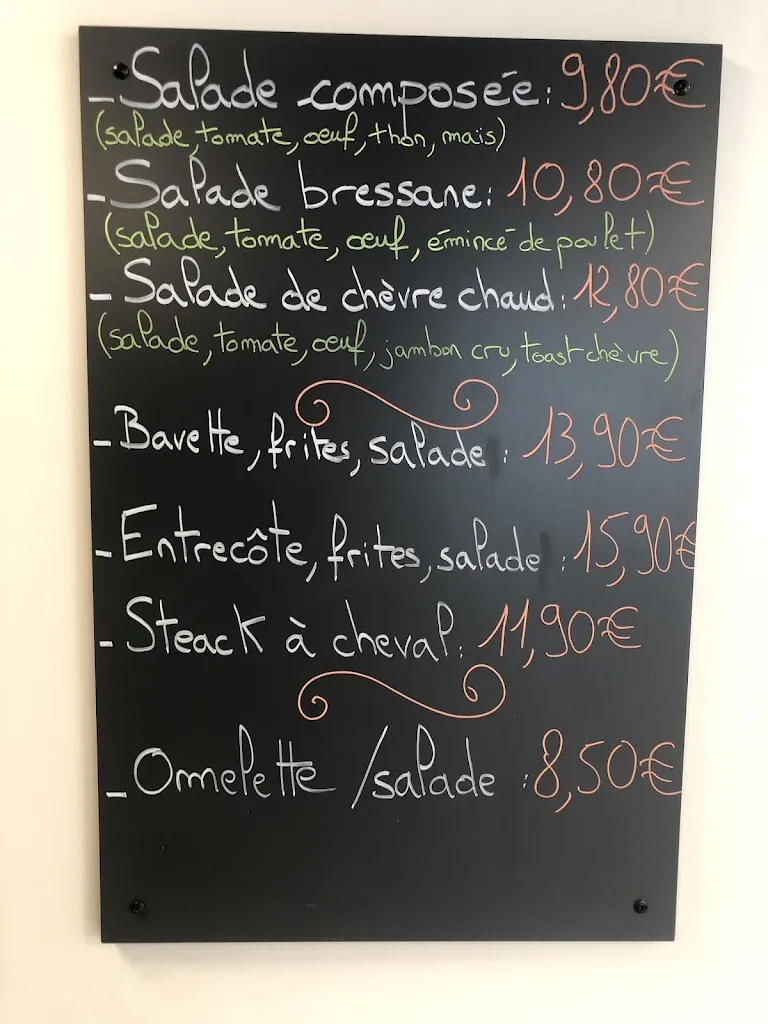 - Salade composée: 9,80€
(salade, tomate, œuf, thon, mais)
- Salade bressane: 10,80€
(salade, tomate, œuf, émincé de poulet)
- Salade de chèvre chaud: 12,80€
(salade, tomate, œuf, jambon cru, toast chèvre)
- Bavette, frites, salade : 13,90€
- Entrecôte, frites, salade : 15,90€
- Steack à cheval: 11,90€
- Omelette /salade : 8,50€